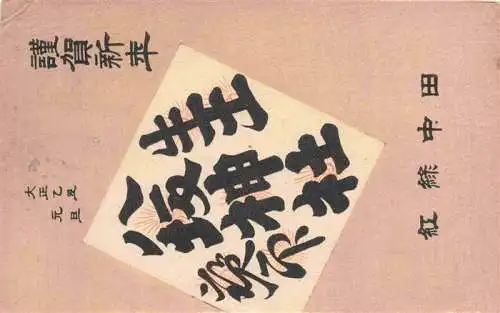 謹賀新年
大正乙丑
元旦
牛王
八坂神社
田中緑紅